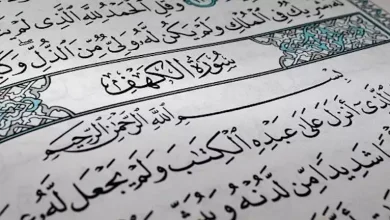 وَقُلِ ٱلْحَمْدُ لِلَّهِ ٱلَّذِى لَمْ
فِى ٱلْمُلْكِ وَلَمْ يَكُن لَّهُۥ وَلِىٌّ مِّنَ ٱلذُّلِّ وَ
سُورَةُ الكَهْفِ
بِسْمِ ٱللَّهِ ٱلرَّحْمَٰنِ ٱلرَّحِيمِ
أَنزَلَ عَلَىٰ عَبْدِهِ ٱلْكِتَٰبَ وَلَمْ يَجْعَل لَّهُۥ
شَدِيدًا مِّن لَّدُنْهُ